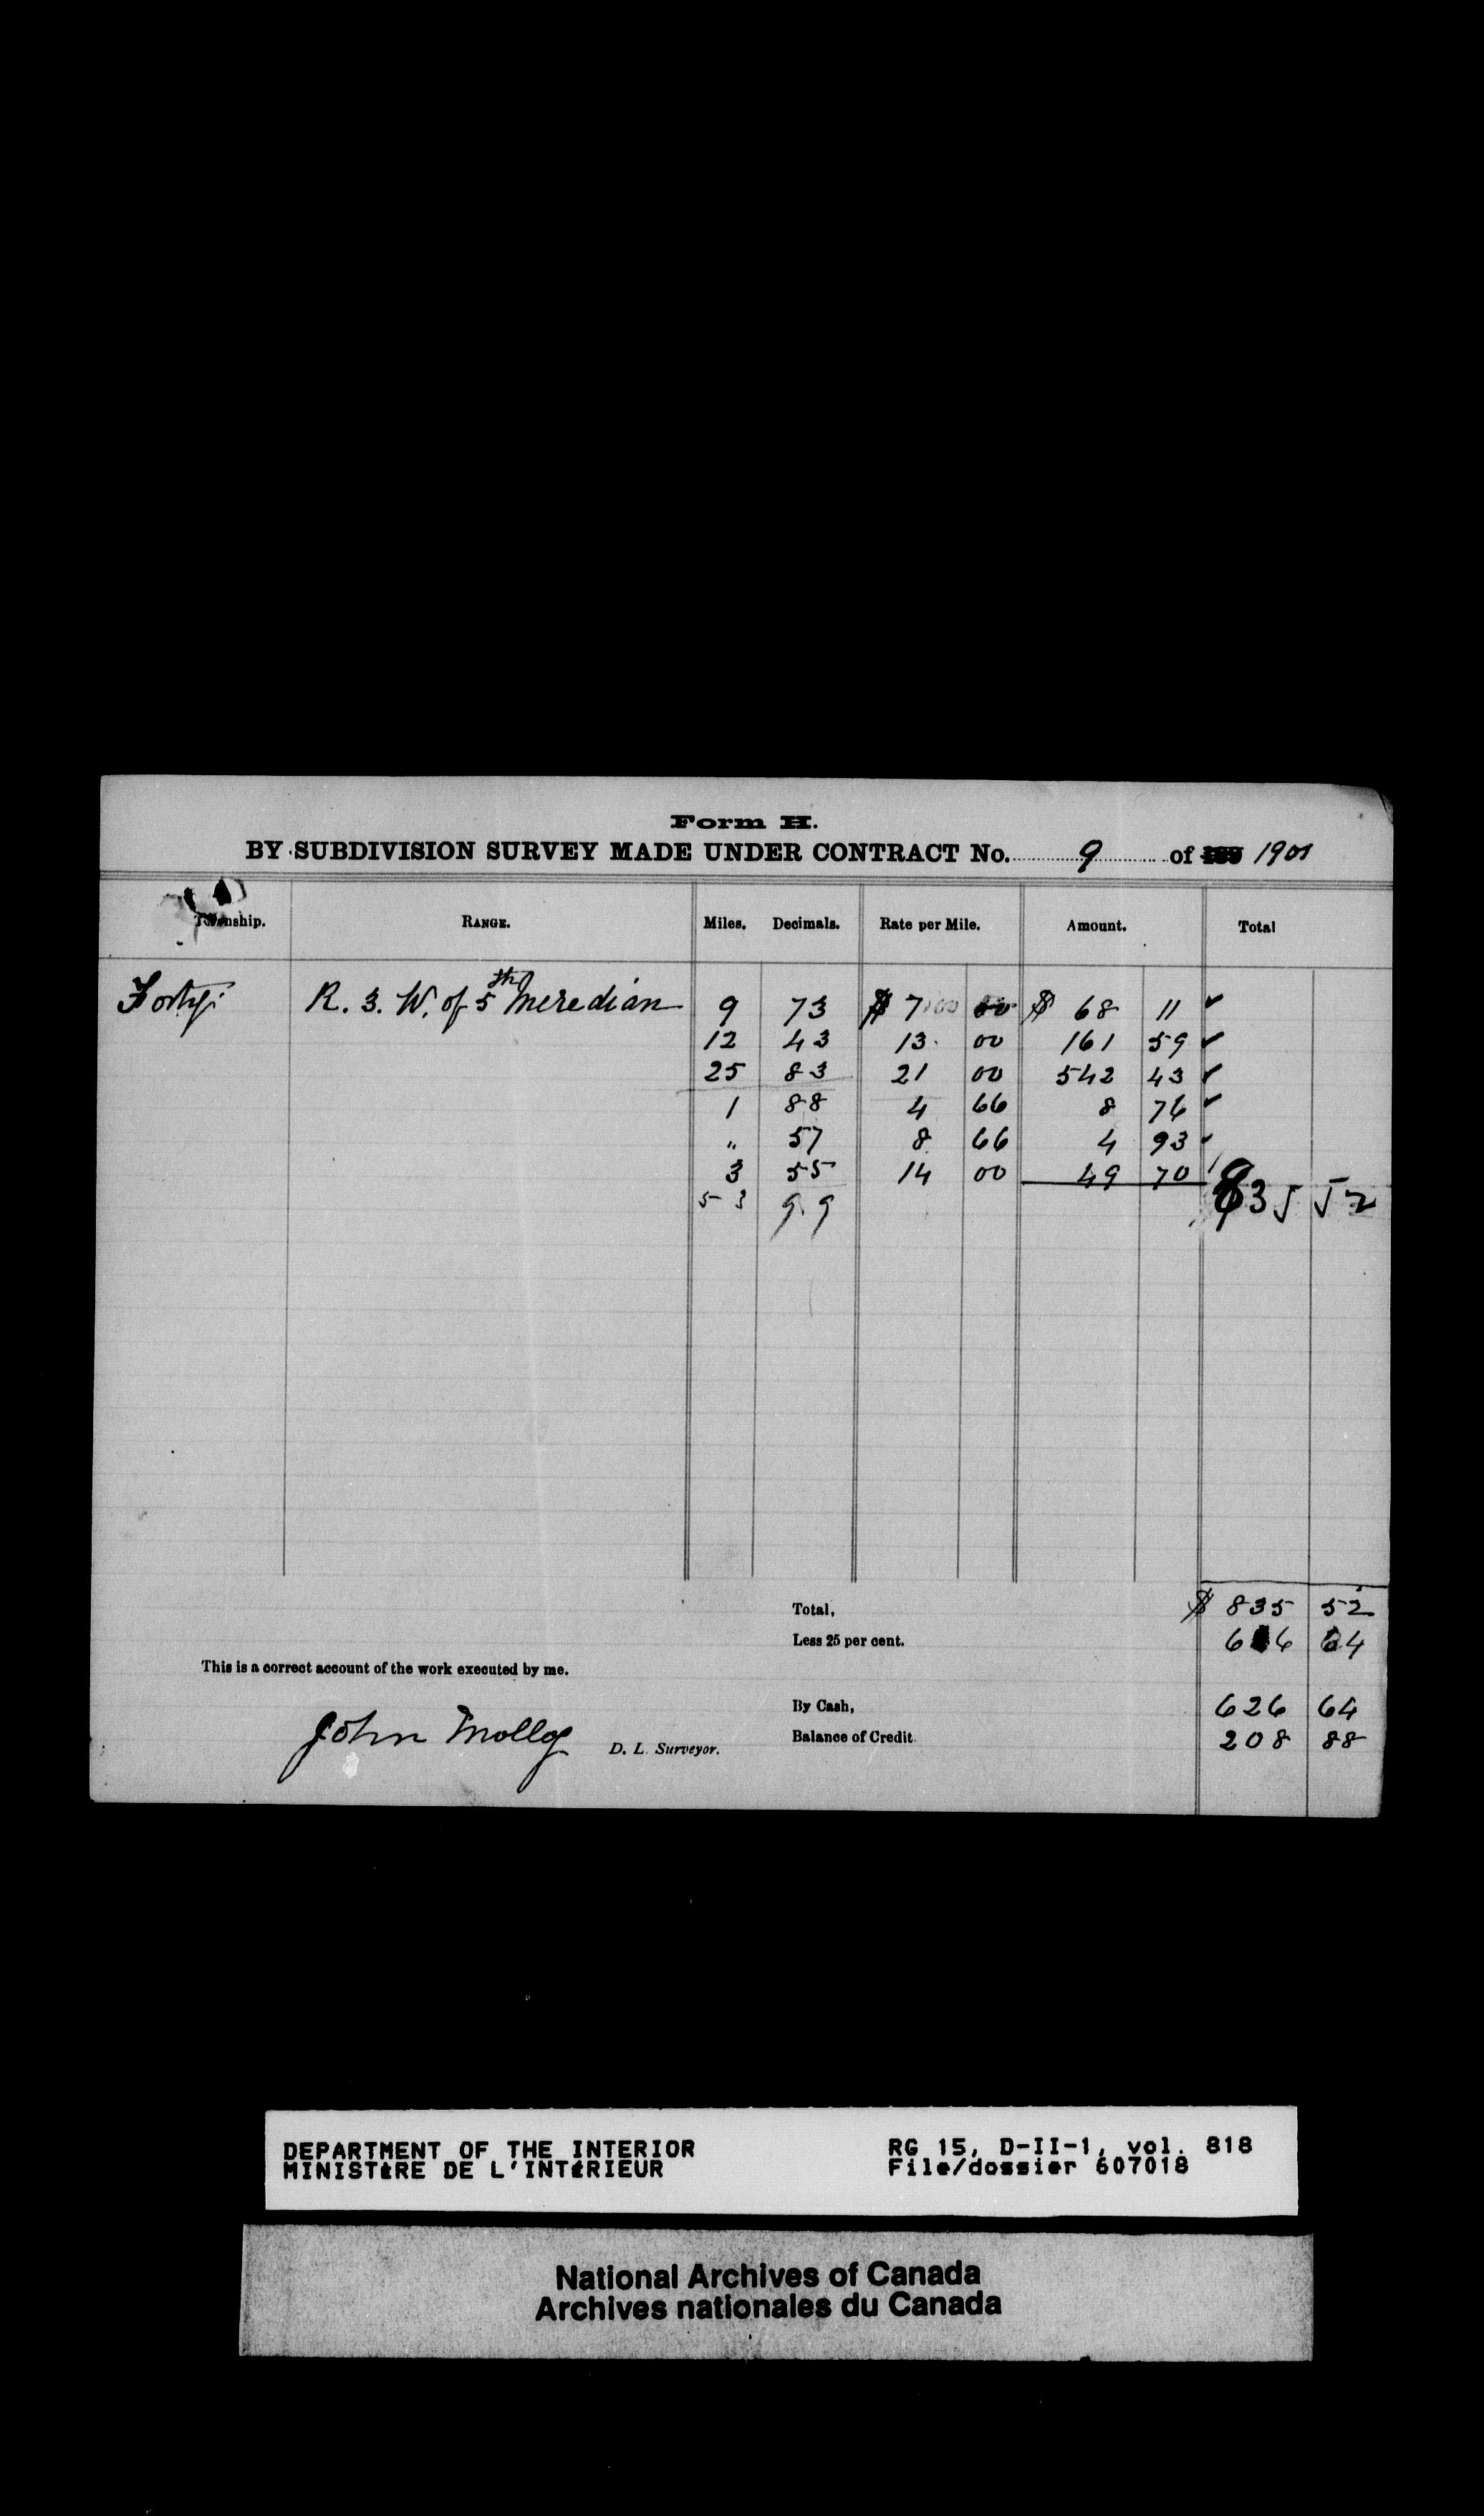 Form H.
BY SUBDIVISION SURVEY MADE UNDER CONTRACT No. 9 of 189 1901
Township. RANGE. Miles. Decimals. Rate per Mile. Amount. Total
Forty R. 3. W. of 5th Meredian 9 73 $ 7 00 00 $ 68 11 ✓
12 43 13. 00 161 59 ✓
25 83 21 00 542 43 ✓
1 88 4 66 8 76 ✓
" 57 8 66 4 93 ✓
3 55 14 00 49 70
53 99 835 52
Total, $ 835 52
Less 25 per cent. 64
This is a correct account of the work executed by me.
By Cash, 626 64
John Molloy D. L. Surveyor. Balance of Credit 208 88
DEPARTMENT OF THE INTERIOR RG 15, D-II-1, vol. 818
MINISTÈRE DE L'INTÉRIEUR File/dossier 607018
National Archives of Canada
Archives nationales du Canada